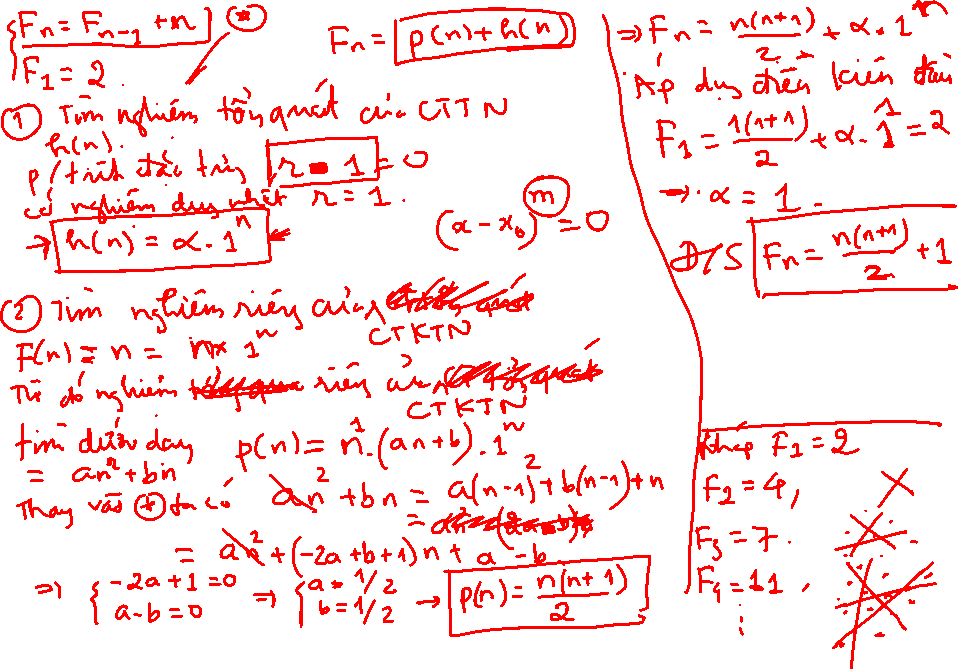 { Fn = Fn-1 + n (*)
F1 = 2.
Fn = p(n) + h(n)
① Tìm nghiệm tổng quát của CTTN
h(n).
p/trình đặc trưng r - 1 = 0
có nghiệm duy nhất r = 1.
→ h(n) = α. 1^n
(x - x0)^m = 0
② Tìm nghiệm riêng của
CTKTN
F(n) = n = n x 1^n
Từ đó nghiệm riêng của
CTKTN
tìm dưới dạng p(n) = n^1.(an+b).1^n
= an^2 + bn
Thay vào (*) ta có an^2 + bn = a(n-1)^2 + b(n-1) + n
= an^2 + (-2a+b+1)n + a - b
⇒ { -2a+1=0
a-b=0
⇒ { a = 1/2
b = 1/2
→ p(n) = n(n+1)/2
⇒ Fn = n(n+1)/2 + α. 1^n
Áp dụng điều kiện đầu
F1 = 1(1+1)/2 + α. 1^1 = 2
→ α = 1.
Đ/S Fn = n(n+1)/2 + 1
F1 = 2
F2 = 4,
F3 = 7.
F4 = 11,
⋮